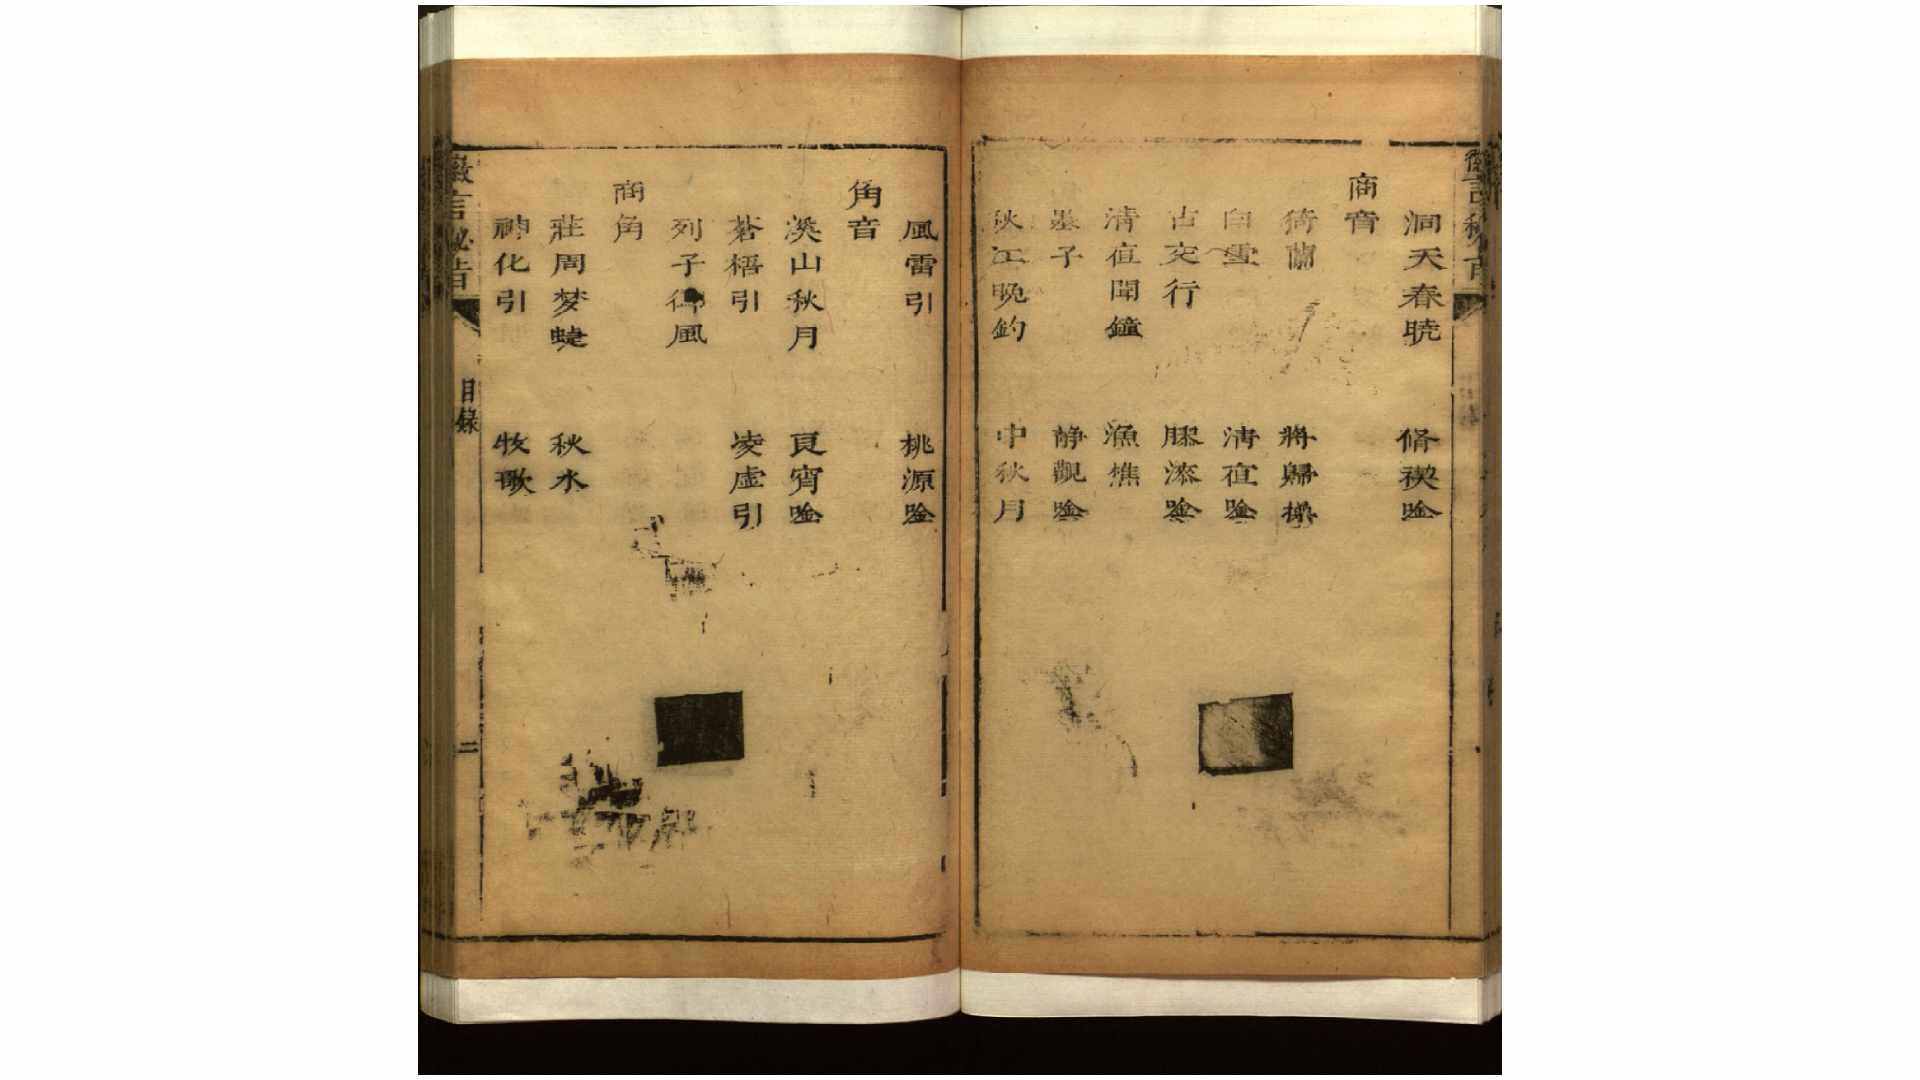 洞天春曉 脩禊吟
商音
猗蘭 將歸操
白雪 清夜吟
古交行 膠漆吟
清夜聞鐘 漁樵
墨子 靜觀吟
秋江晚釣 中秋月
風雷引 桃源吟
角音
溪山秋月 良宵吟
蒼梧引 凌虛引
列子御風
商角
莊周梦蝶 秋水
神化引 牧歌
徽言秘旨
目錄
二